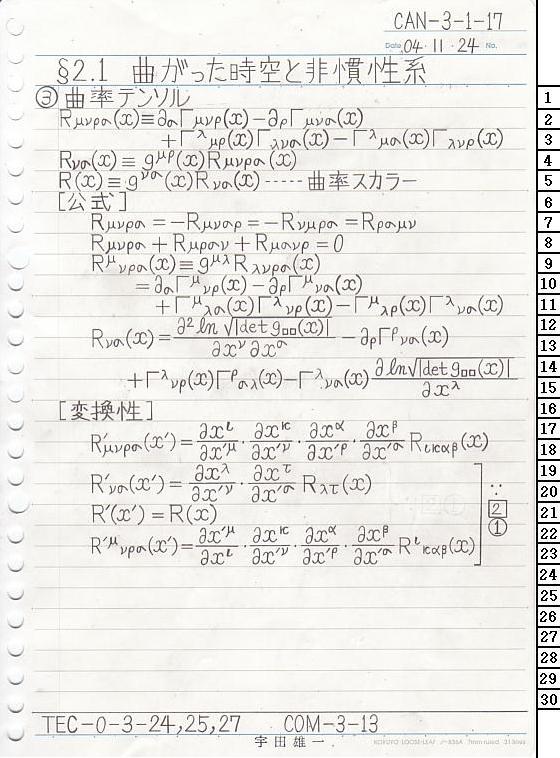 CAN-3-1-17
Date 04・11・24 No.
§2.1 曲がった時空と非慣性系
③ 曲率テンソル
Rμνρσ(x)≡∂σΓμνρ(x)−∂ρΓμνσ(x)
+Γ^λμρ(x)Γλνσ(x)−Γ^λμσ(x)Γλνρ(x)
Rνσ(x)≡g^μρ(x)Rμνρσ(x)
R(x)≡g^νσ(x)Rνσ(x)-----曲率スカラー
[公式]
Rμνρσ=−Rμνσρ=−Rνμρσ=Rρσμν
Rμνρσ+Rμρσν+Rμσνρ=0
R^μνρσ(x)≡g^μλRλνρσ(x)
=∂σΓ^μνρ(x)−∂ρΓ^μνσ(x)
+Γ^μλσ(x)Γ^λνρ(x)−Γ^μλρ(x)Γ^λνσ(x)
Rνσ(x)=∂² ln √|det g□□(x)| / ∂x^ν ∂x^σ −∂ρΓ^ρνσ(x)
+Γ^λνρ(x)Γ^ρσλ(x)−Γ^λνσ(x) ∂ ln√|det g□□(x)| / ∂x^λ
[変換性]
R′μνρσ(x′)=∂x^ι/∂x′^μ・∂x^κ/∂x′^ν・∂x^α/∂x′^ρ・∂x^β/∂x′^σ Rικαβ(x)
R′νσ(x′)=∂x^λ/∂x′^ν・∂x^τ/∂x′^σ Rλτ(x)
R′(x′)=R(x)
R′^μνρσ(x′)=∂x′^μ/∂x^ι・∂x^κ/∂x′^ν・∂x^α/∂x′^ρ・∂x^β/∂x′^σ R^ικαβ(x)
∵
2
①
TEC-0-3-24,25,27 COM-3-13
宇田雄一
KOKUYO LOOSE-LEAF ノ-836A 7mm ruled 31 lines
1
2
3
4
5
6
7
8
9
10
11
12
13
14
15
16
17
18
19
20
21
22
23
24
25
26
27
28
29
30